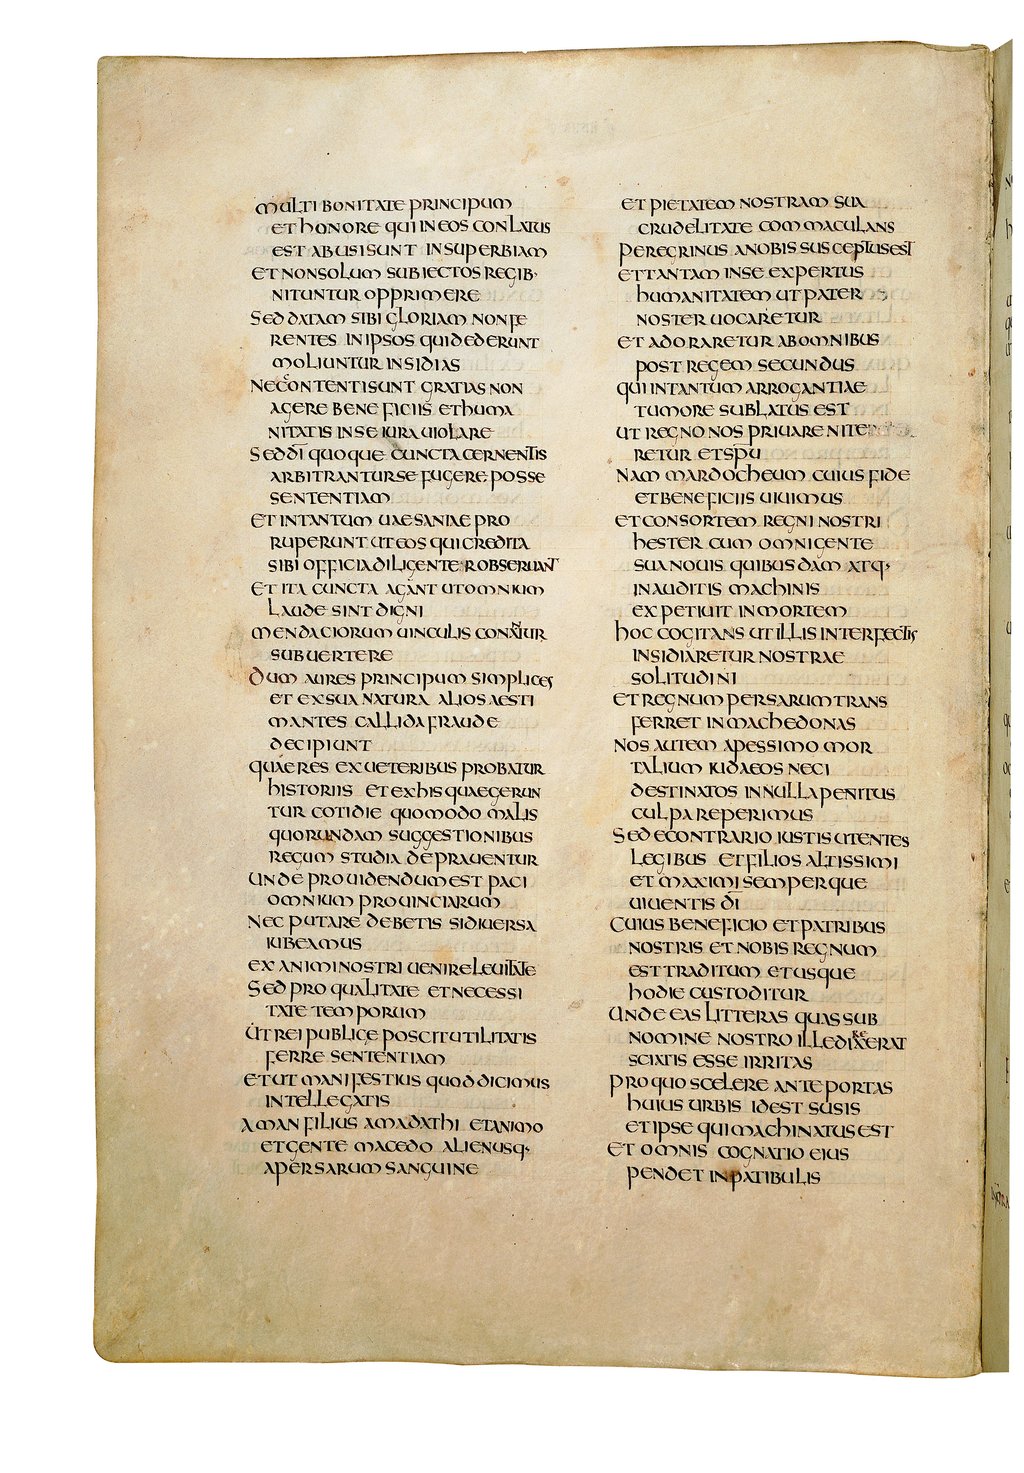 MULTI BONITATE PRINCIPUM
ET HONORE QUI IN EOS CONLATUS
EST ABUSI SUNT IN SUPERBIAM
ET NON SOLUM SUBIECTOS REGIB·
NITUNTUR OPPRIMERE
SED DATAM SIBI GLORIAM NON FE
RENTES IN IPSOS QUI DEDERUNT
MOLIUNTUR INSIDIAS
NEC CONTENTI SUNT GRATIAS NON
AGERE BENEFICIIS ET HUMA
NITATIS IN SE IURA UIOLARE
SED D̅I QUOQUE CUNCTA CERNENTIS
ARBITRANTUR SE FUGERE POSSE
SENTENTIAM
ET IN TANTUM UAESANIAE PRO
RUPERUNT UT EOS QUI CREDITA
SIBI OFFICIA DILIGENTER OBSERUANT
ET ITA CUNCTA AGANT UT OMNIUM
LAUDE SINT DIGNI
MENDACIORUM UINCULIS CONANTUR
SUBUERTERE
DUM AURES PRINCIPUM SIMPLICES
ET EX SUA NATURA ALIOS AESTI
MANTES CALLIDA FRAUDE
DECIPIUNT
QUAE RES EX UETERIBUS PROBATUR
HISTORIIS ET EX HIS QUAE GERUN
TUR COTIDIE QUOMODO MALIS
QUORUNDAM SUGGESTIONIBUS
REGUM STUDIA DEPRAUENTUR
UNDE PROUIDENDUM EST PACI
OMNIUM PROUINCIARUM
NEC PUTARE DEBETIS SI DIUERSA
IUBEAMUS
EX ANIMI NOSTRI UENIRE LEUITATE
SED PRO QUALITATE ET NECESSI
TATE TEMPORUM
UT REI PUBLICE POSCIT UTILITATIS
FERRE SENTENTIAM
ET UT MANIFESTIUS QUOD DICIMUS
INTELLEGATIS
AMAN FILIUS AMADATHI ET ANIMO
ET GENTE MACEDO ALIENUSQ·
A PERSARUM SANGUINE
ET PIETATEM NOSTRAM SUA
CRUDELITATE COMMACULANS
PEREGRINUS A NOBIS SUSCEPTUS EST
ET TANTAM IN SE EXPERTUS
HUMANITATEM UT PATER
NOSTER UOCARETUR
ET ADORARETUR AB OMNIBUS
POST REGEM SECUNDUS
QUI IN TANTUM ARROGANTIAE
TUMORE SUBLATUS EST
UT REGNO NOS PRIUARE NITE
RETUR ET SP̅U
NAM MARDOCHEUM CUIUS FIDE
ET BENEFICIIS UIUIMUS
ET CONSORTEM REGNI NOSTRI
HESTER CUM OMNI GENTE
SUA NOUIS QUIBUSDAM ATQ·
INAUDITIS MACHINIS
EXPETIUIT IN MORTEM
HOC COGITANS UT ILLIS INTERFECTIS
INSIDIARETUR NOSTRAE
SOLITUDINI
ET REGNUM PERSARUM TRANS
FERRET IN MACHEDONAS
NOS AUTEM A PESSIMO MOR
TALIUM IUDAEOS NECI
DESTINATOS IN NULLA PENITUS
CULPA REPERIMUS
SED E CONTRARIO IUSTIS UTENTES
LEGIBUS ET FILIOS ALTISSIMI
ET MAXIMI SEMPERQUE
UIUENTIS D̅I
CUIUS BENEFICIO ET PATRIBUS
NOSTRIS ET NOBIS REGNUM
EST TRADITUM ET USQUE
HODIE CUSTODITUR
UNDE EAS LITTERAS QUAS SUB
NOMINE NOSTRO ILLE DIREXERAT
SCIATIS ESSE IRRITAS
PRO QUO SCELERE ANTE PORTAS
HUIUS URBIS ID EST SUSIS
ET IPSE QUI MACHINATUS EST
ET OMNIS COGNATIO EIUS
PENDET IN PATIBULIS